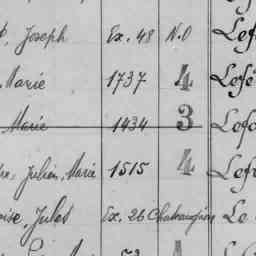 Joseph Ex. 48 N.O Lef
Marie 1737 4 Lefe
Marie 1434 3 Lefe
Julien, Marie 1515 4 Lef
Jules Ex. 26 Le